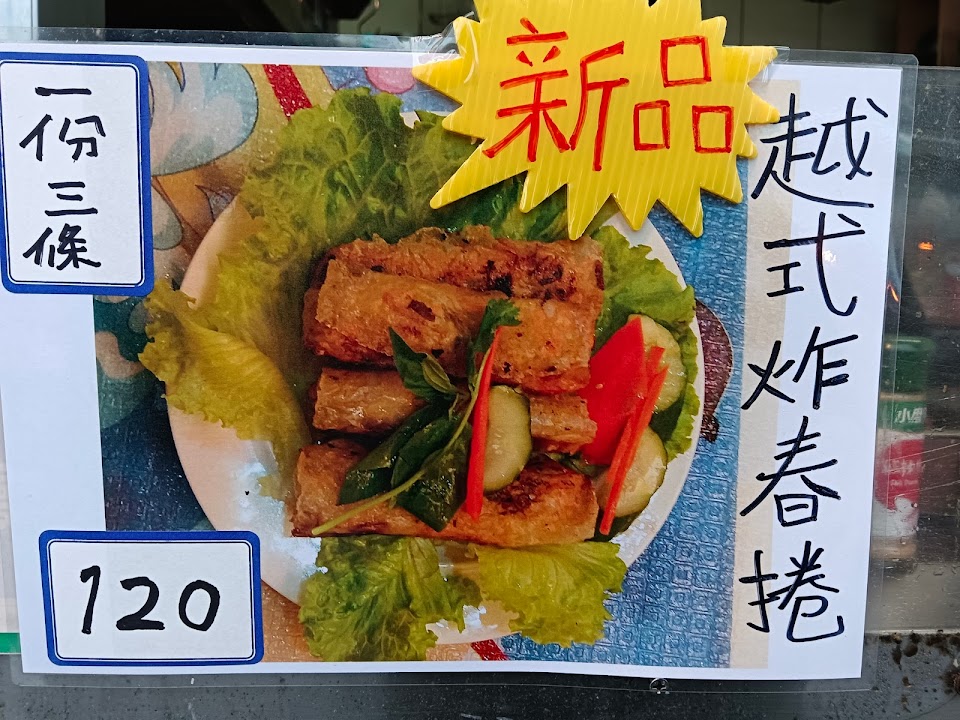 新品
越式炸春捲
一份三條
120